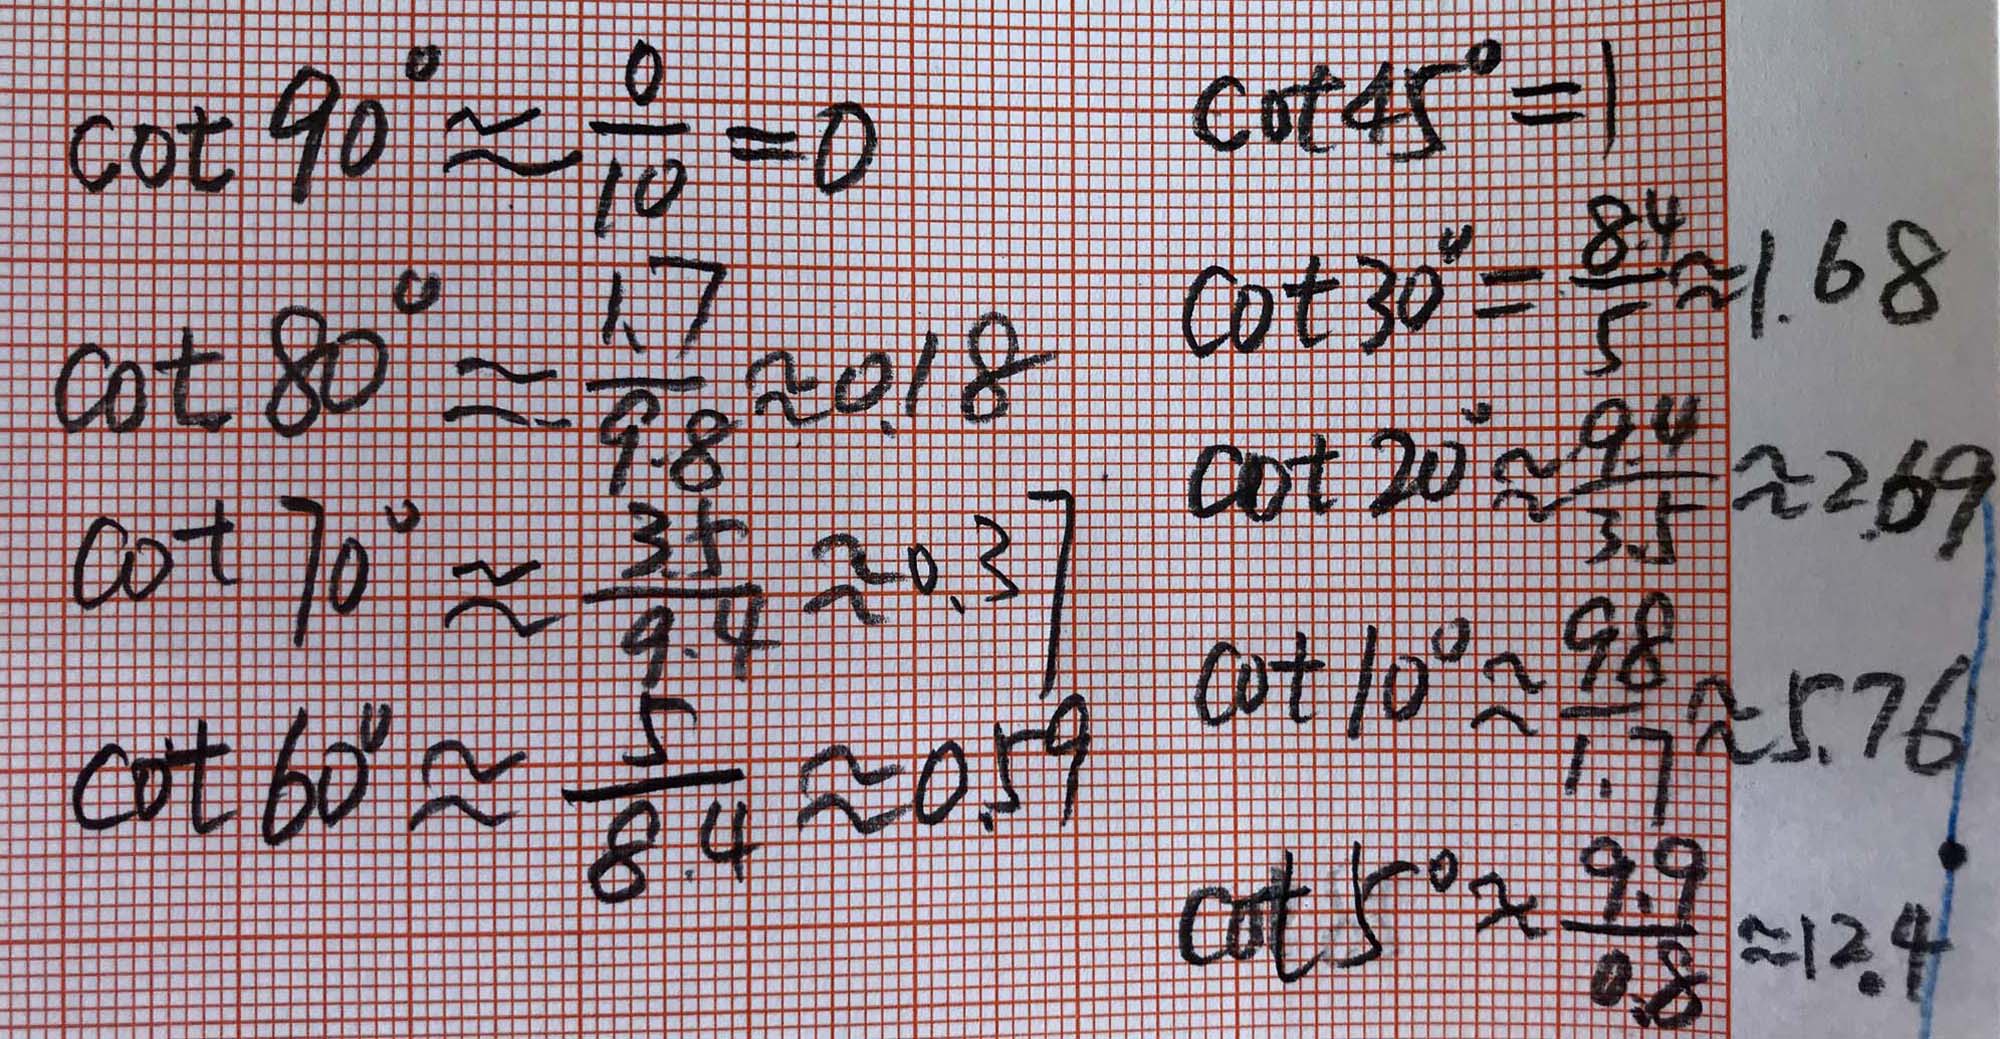 cot 90° ≈ 0/10 = 0
cot 80° ≈ 1.7/9.8 ≈ 0.18
cot 70° ≈ 3.5/9.4 ≈ 0.37
cot 60° ≈ 5/8.4 ≈ 0.59
cot 45° = 1
cot 30° = 8.4/5 ≈ 1.68
cot 20° ≈ 9.4/3.5 ≈ 2.69
cot 10° ≈ 9.8/1.7 ≈ 5.76
cot 5° ≈ 9.9/0.8 ≈ 12.4